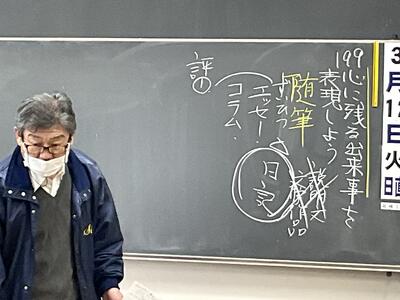 199心に残る出来事を
表現しよう
随筆
ずいひつ
エッセー・
コラム
日記
品
評①
3
月
1
日
火
曜